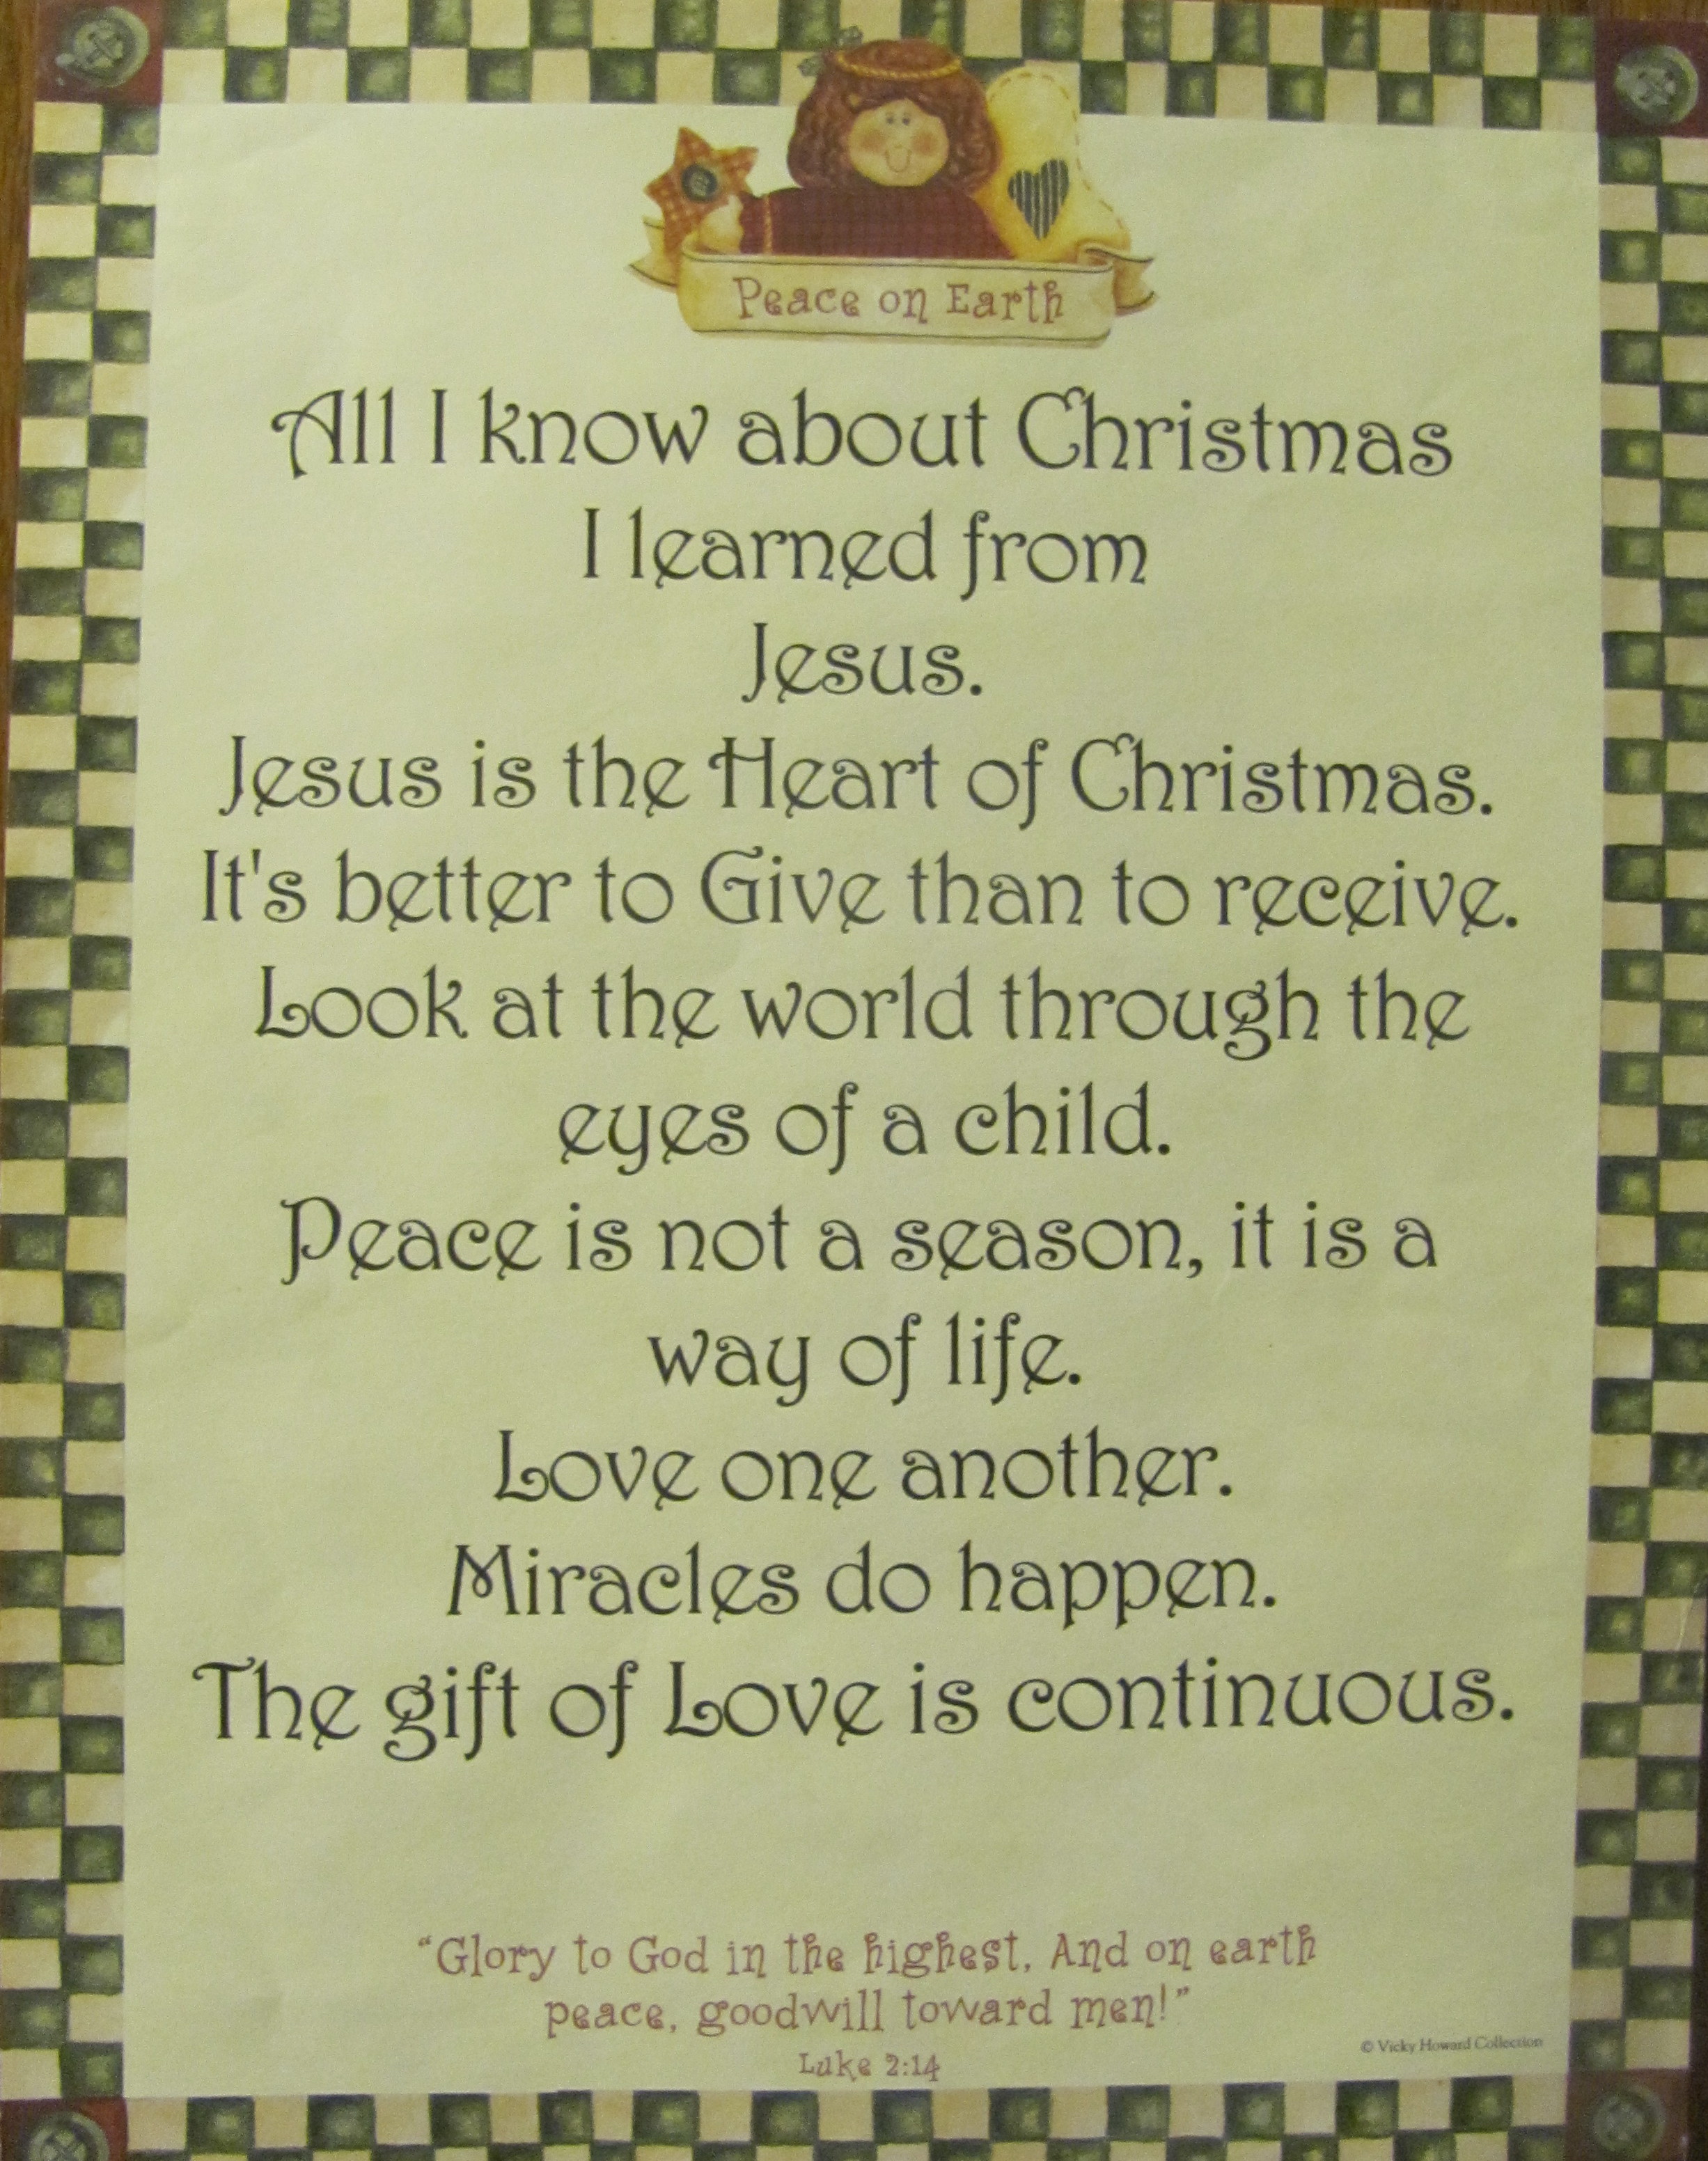 Peace on Earth
All I know about Christmas
I learned from
Jesus.
Jesus is the Heart of Christmas.
It's better to Give than to receive.
Look at the world through the
eyes of a child.
Peace is not a season, it is a
way of life.
Love one another.
Miracles do happen.
The gift of Love is continuous.
“Glory to God in the highest, And on earth
peace, goodwill toward men!”
Luke 2:14
© Vicky Howard Collection